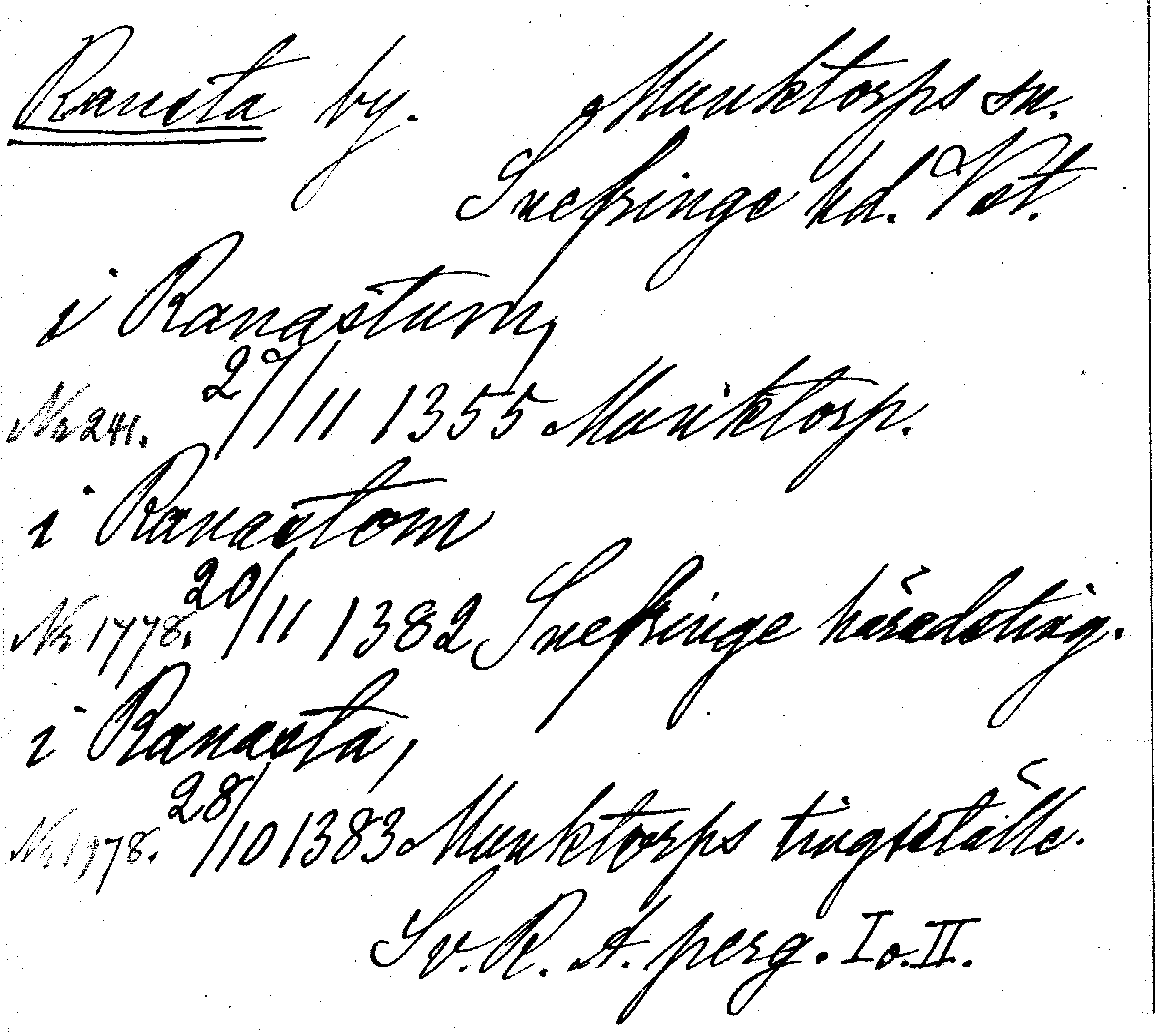 Ransta by. Munktorps sn.
Snefringe hd. Vst.
i Ranastum,
Nr 241. 27/11 1355 Munktorp.
i Ranastom
Nr 1778. 20/11 1382 Snefringe häradsting.
i Ranasta,
Nr 1978. 28/10 1383 Munktorps tingställe.
Sv. R. A. perg. I o. II.